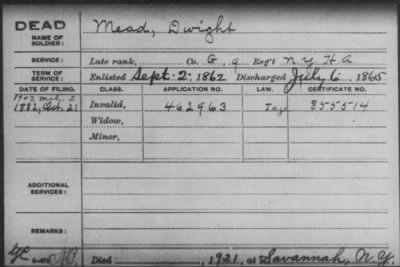 DEAD
NAME OF SOLDIER:
Mead, Dwight
SERVICE:
Late rank, Co. G, 9 Reg't N.Y.H.A
TERM OF SERVICE:
Enlisted Sept. 2, 1862 Discharged July 6, 1865
DATE OF FILING. CLASS. APPLICATION NO. LAW. CERTIFICATE NO.
1907
1882, Oct. 21 Invalid, 462963 855514
Widow,
Minor,
ADDITIONAL SERVICES:
REMARKS:
Died , 1921, at Savannah, N.Y.